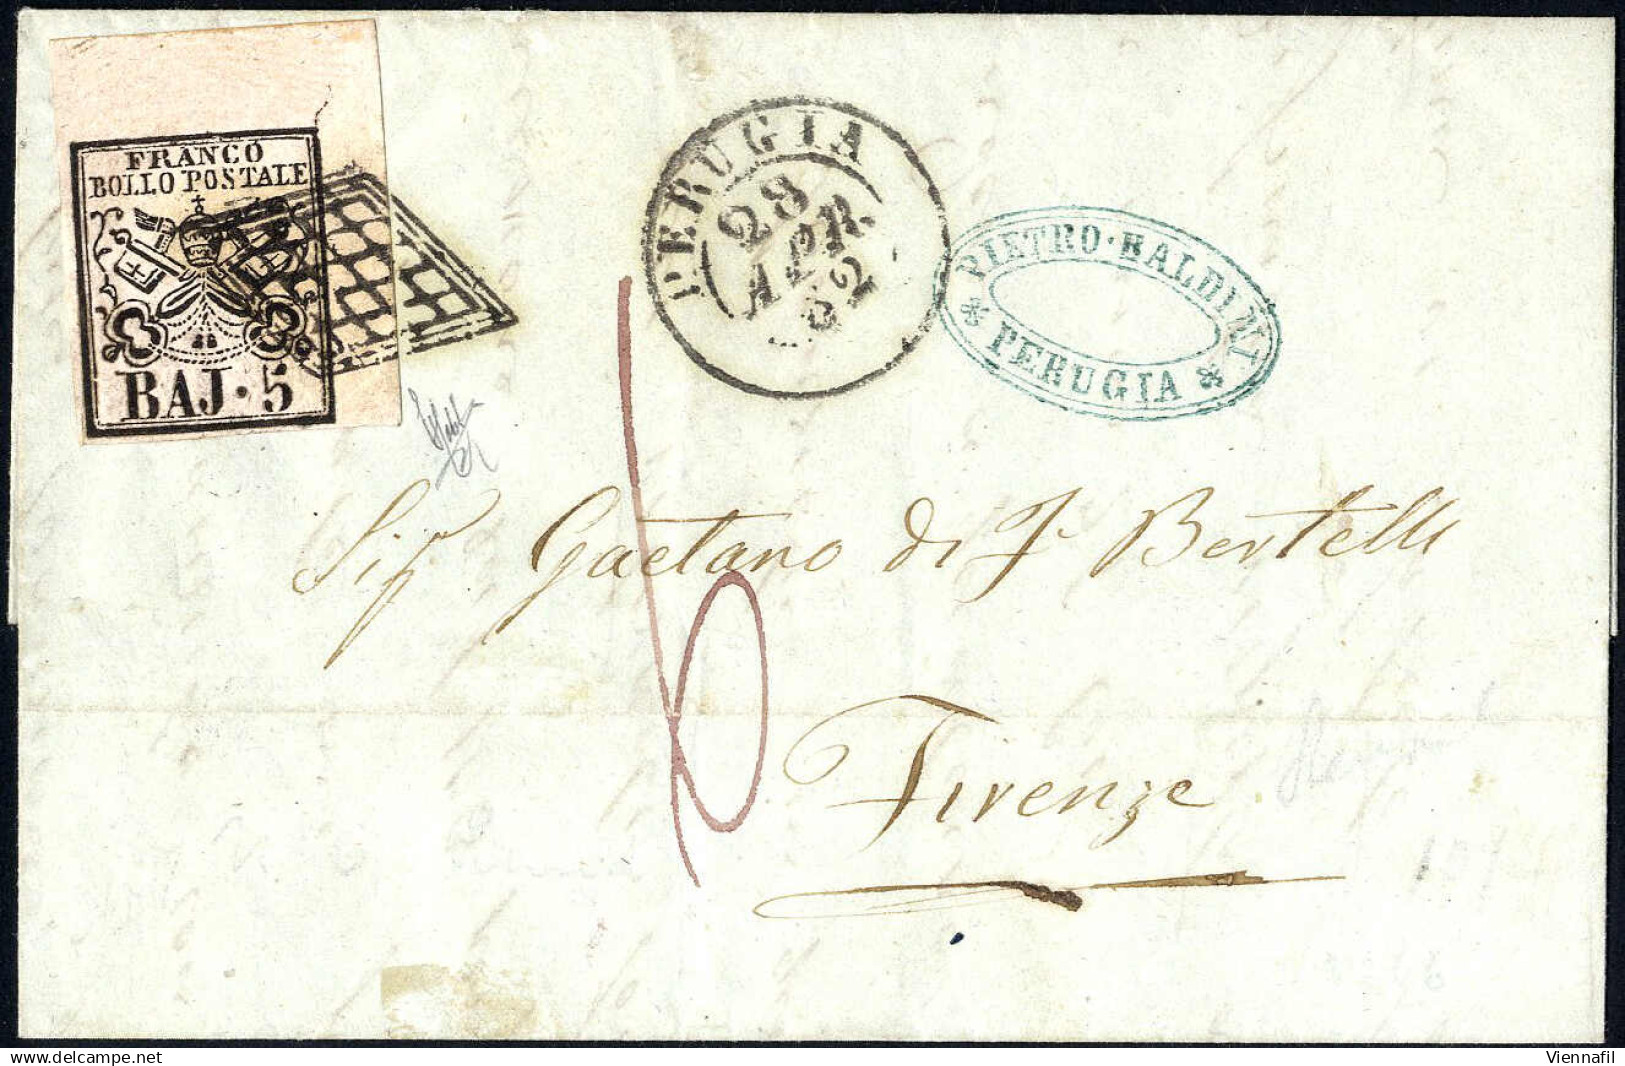 FRANCO
BOLLO POSTALE
BAJ · 5
PERUGIA
28
APR.
52
PIETRO · BALDINI
PERUGIA
6
Sig Gaetano di F. Bertelli
Firenze
Viennafil